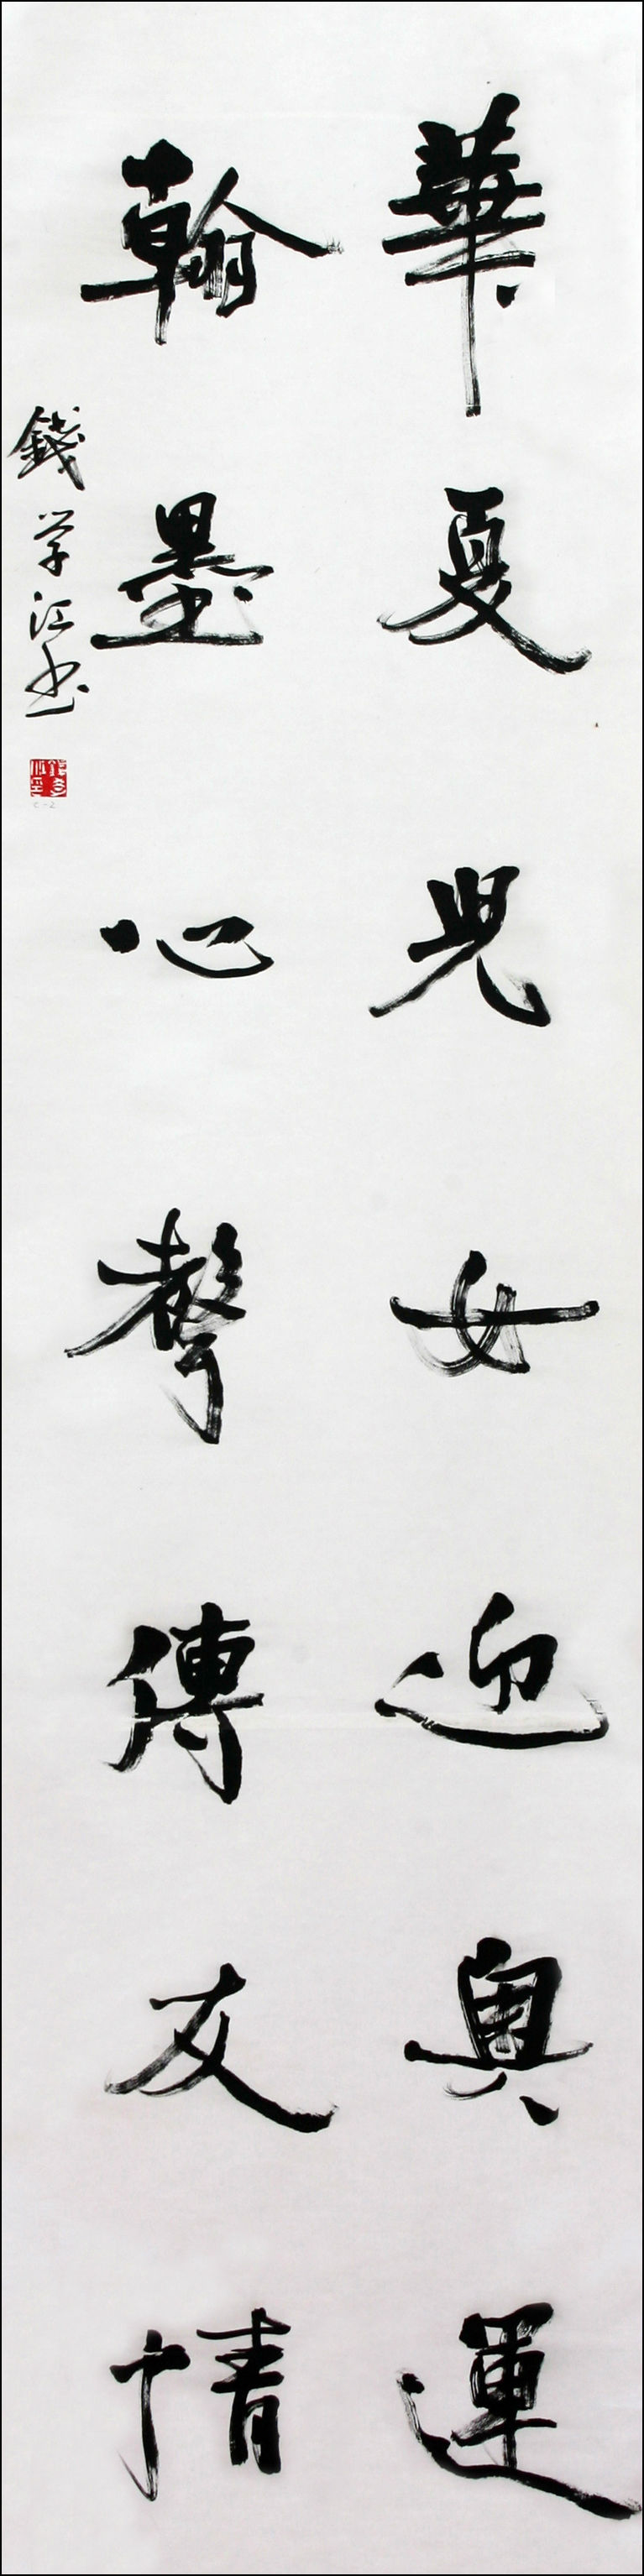 華夏兒女迎奧運
翰墨心聲傳友情
錢学江书
C-2